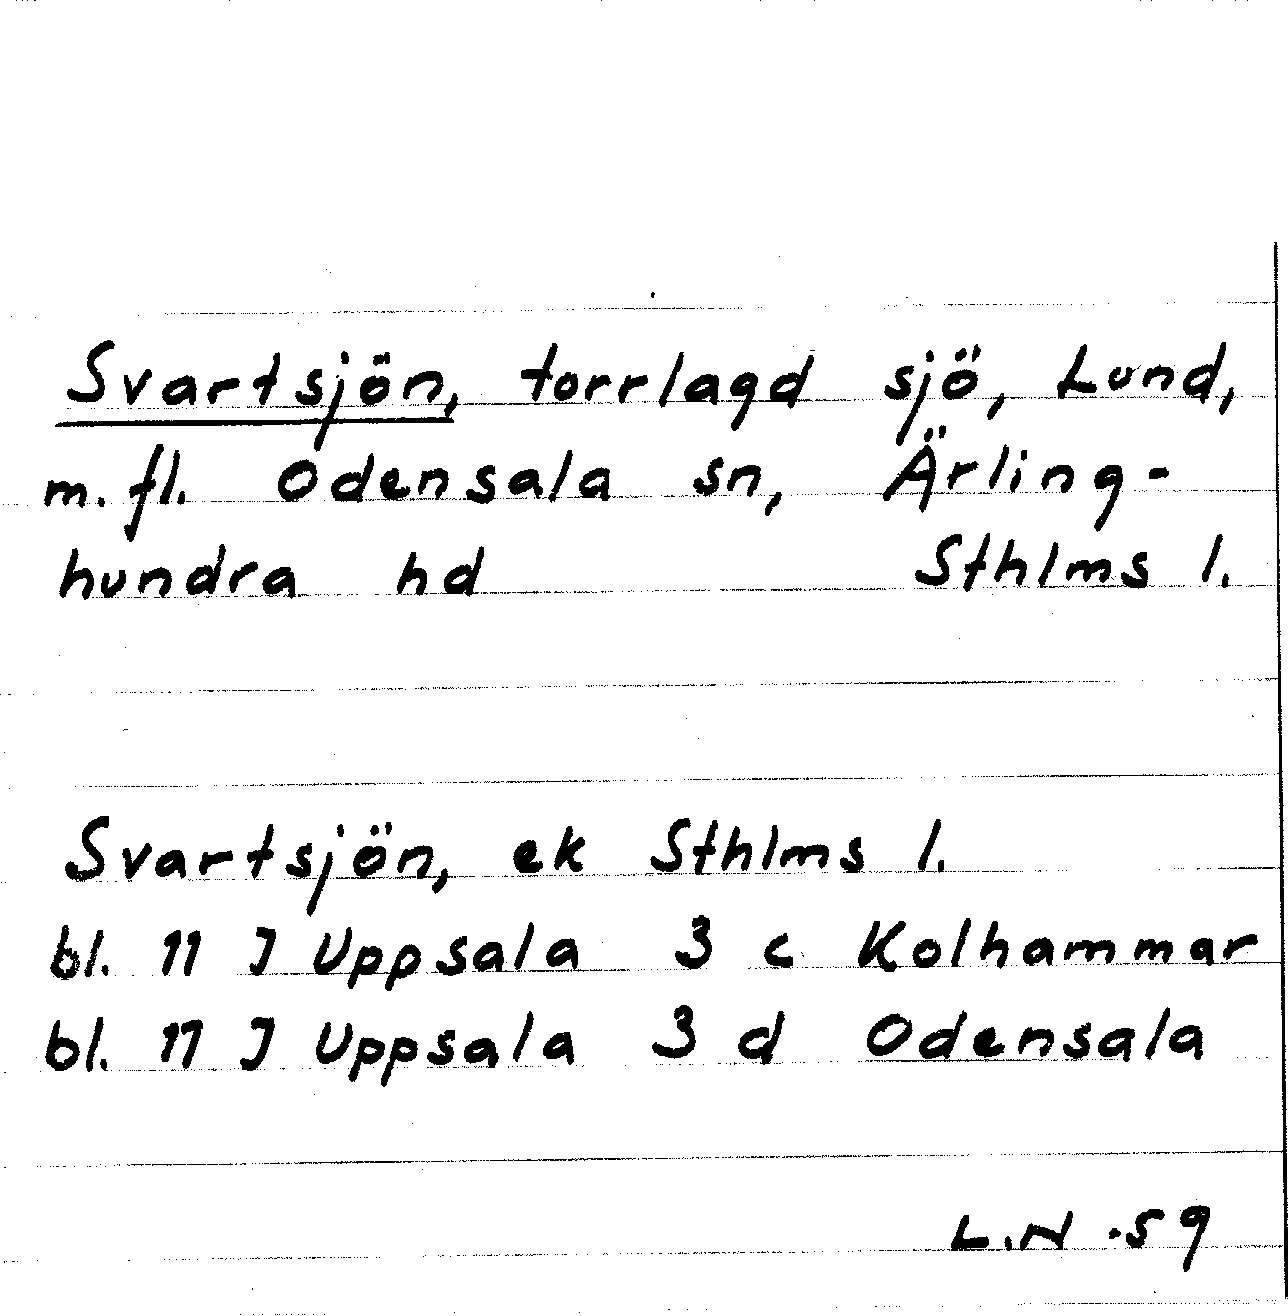 Svartsjön, torrlagd sjö, Lund,
m. fl. Odensala sn, Ärling-
hundra hd Sthlms l.
Svartsjön, ek Sthlms l.
bl. 11 J Uppsala 3 c Kolhammar
bl. 11 J Uppsala 3 d Odensala
L.N .59